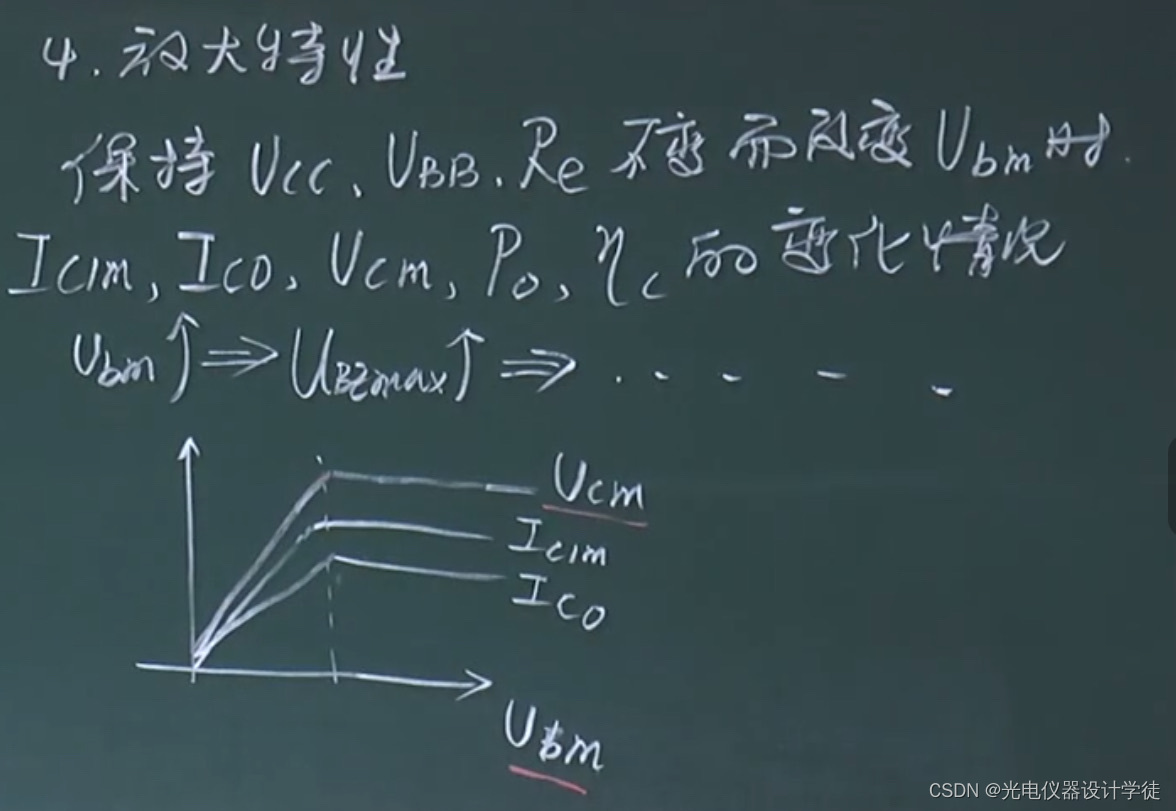 4. 放大特性
保持 UCC、UBB、Re 不变而改变 Ubm 时.
IC1m, IC0, Ucm, Po, ηc 的变化情况
Ubm↑⇒UBEmax↑⇒ . - - - -
Ucm
Ic1m
IC0
Ubm
CSDN @光电仪器设计学徒